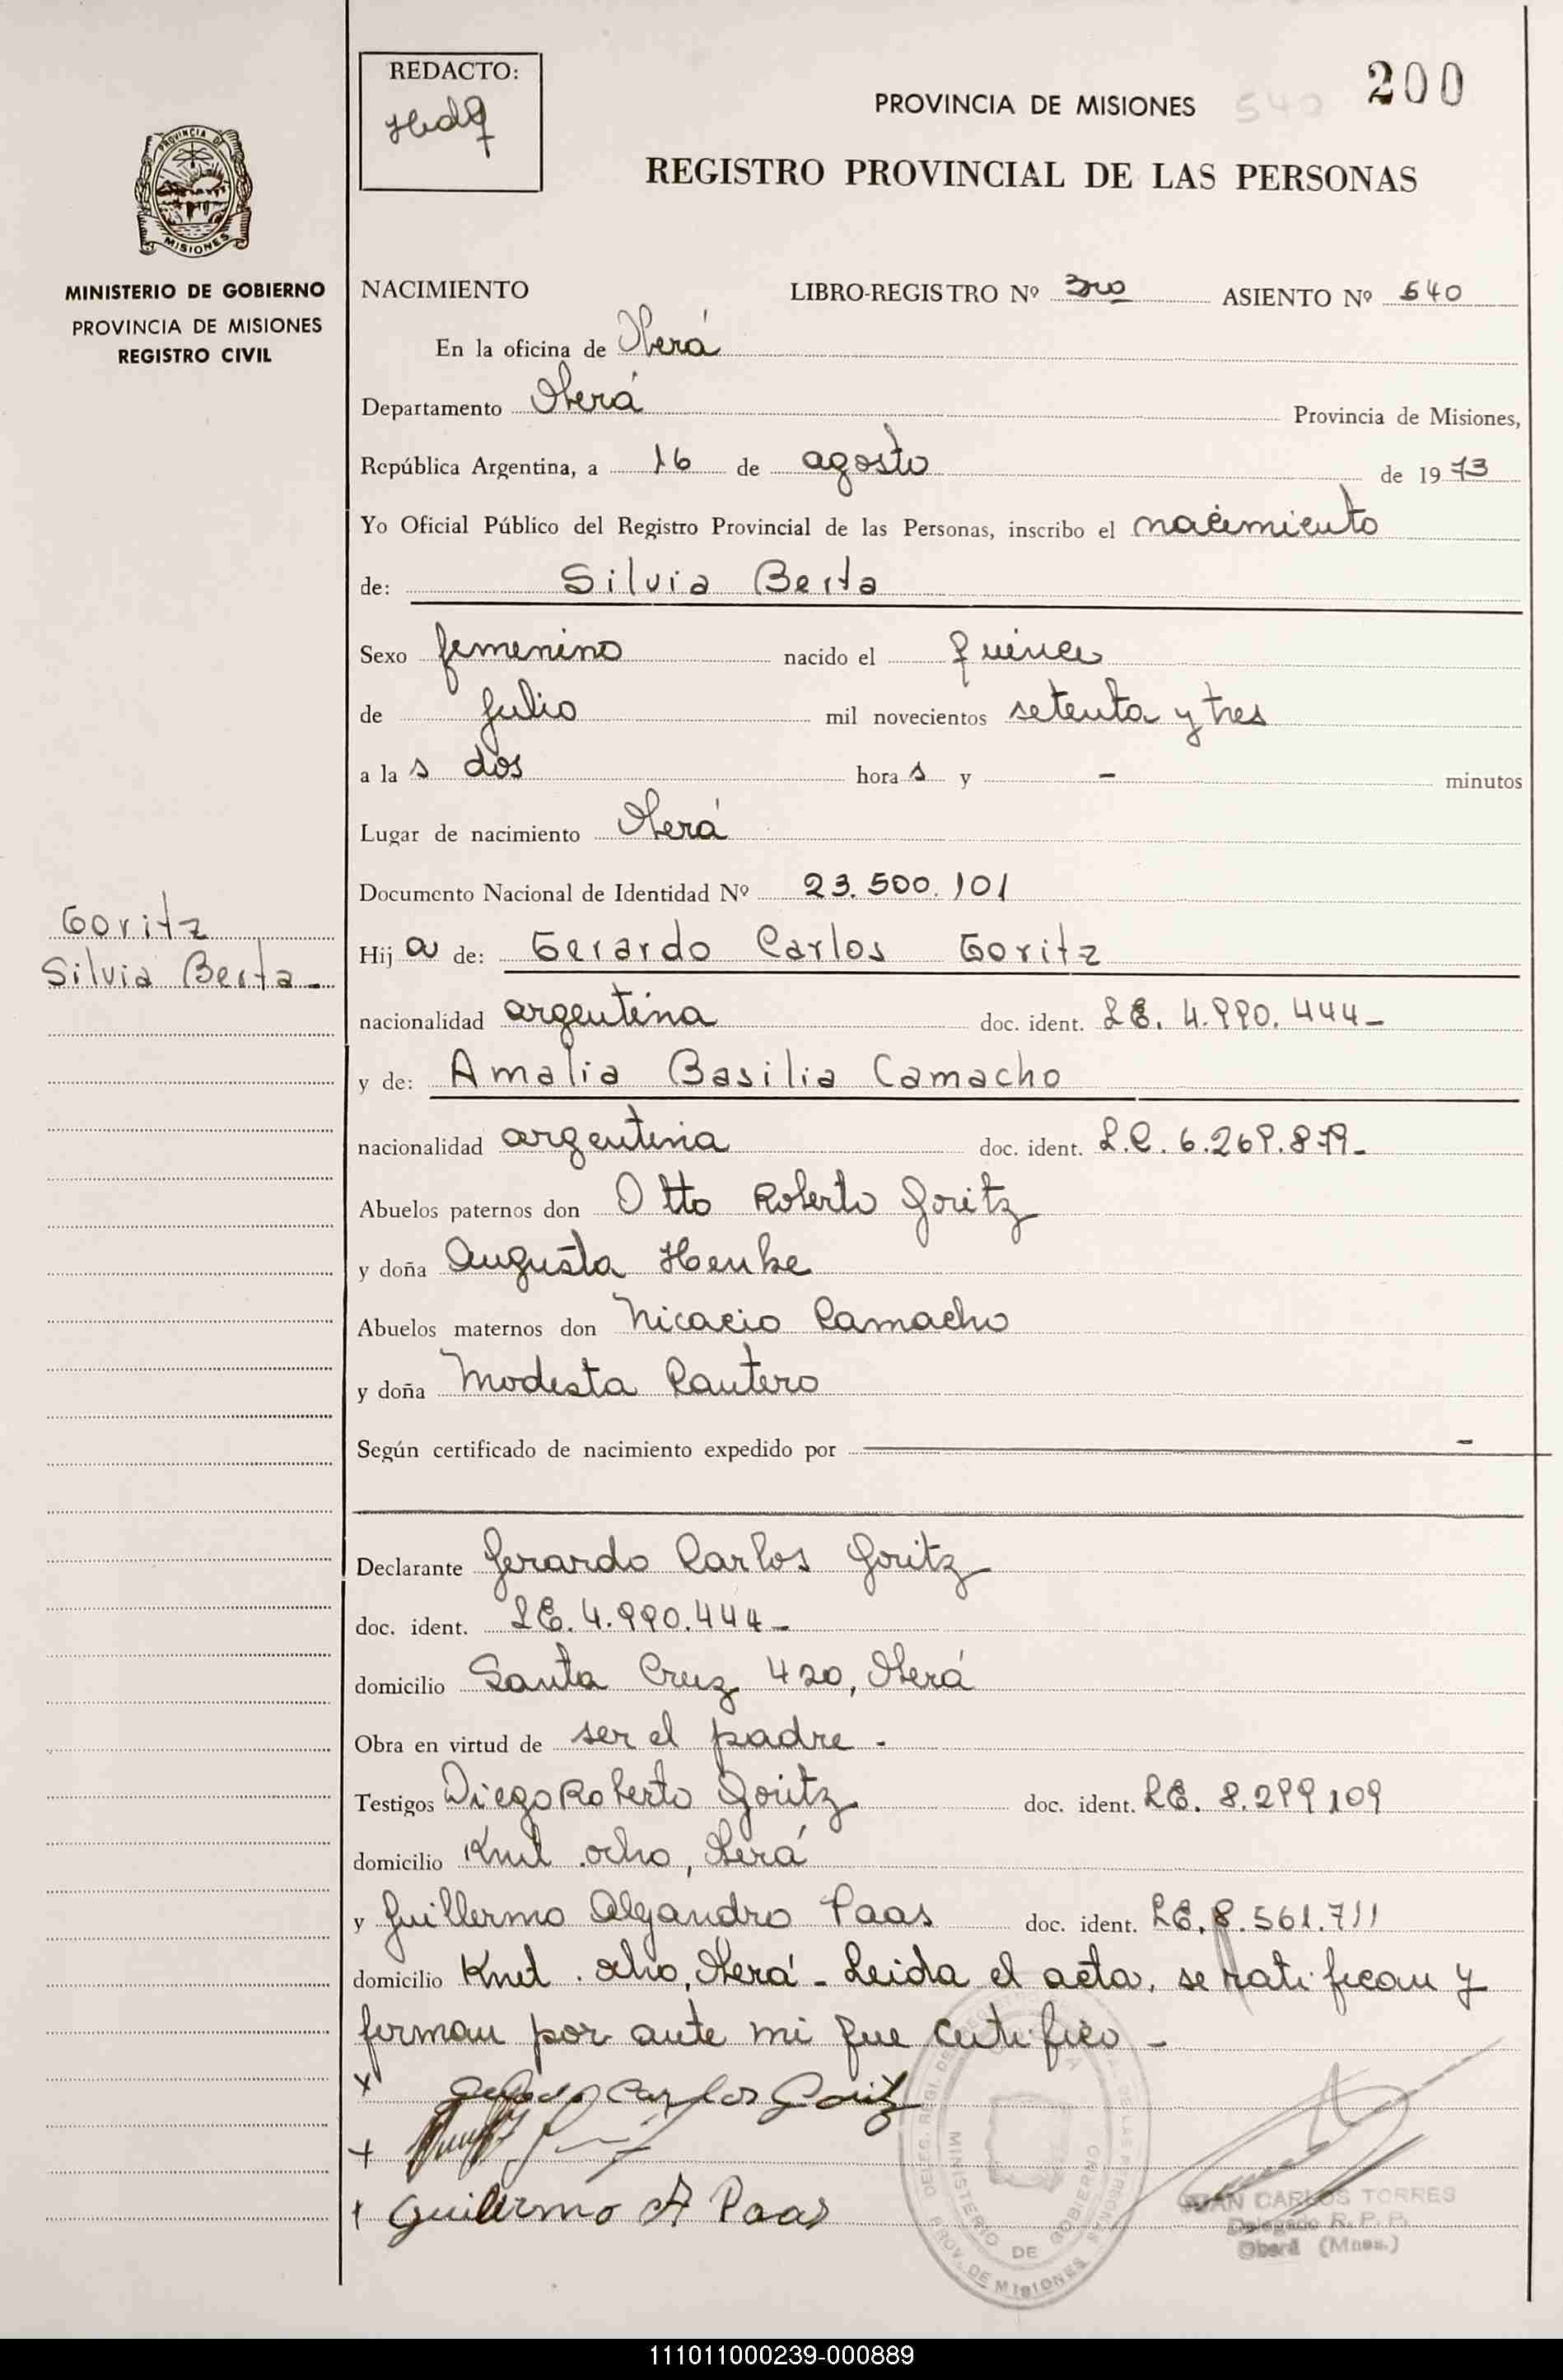 REDACTO:
200
PROVINCIA DE MISIONES 540
REGISTRO PROVINCIAL DE LAS PERSONAS
PROVINCIA DE
MISIONES
MINISTERIO DE GOBIERNO
PROVINCIA DE MISIONES
REGISTRO CIVIL
NACIMIENTO LIBRO-REGISTRO Nº 3ro ASIENTO Nº 540
En la oficina de Oberá
Departamento Oberá Provincia de Misiones,
República Argentina, a 16 de agosto de 1973
Yo Oficial Público del Registro Provincial de las Personas, inscribo el nacimiento
de: Silvia Berta
Sexo femenino nacido el quince
de julio mil novecientos setenta y tres
a la s dos hora s y - minutos
Lugar de nacimiento Oberá
Documento Nacional de Identidad Nº 23.500.101
Goritz
Silvia Berta-
Hij a de: Gerardo Carlos Goritz
nacionalidad argentina doc. ident. LE. 4.990.444-
y de: Amalia Basilia Camacho
nacionalidad argentina doc. ident. L.C. 6.269.879-
Abuelos paternos don Otto Roberto Goritz
y doña Augusta Henke
Abuelos maternos don Nicacio Camacho
y doña Modesta Cantero
Según certificado de nacimiento expedido por -
Declarante Gerardo Carlos Goritz
doc. ident. LE. 4.990.444-
domicilio Santa Cruz 420, Oberá
Obra en virtud de ser el padre -
Testigos Diego Roberto Goritz doc. ident. LE. 8.299.109
domicilio Kmt. ocho, Oberá
y Guillermo Alejandro Paas doc. ident. LE. 8.561.711
domicilio Kmt. ocho, Oberá - Leida el acta, se ratifican y
firman por ante mi que certifico -
x Gerardo Carlos Goritz
x
x Guillermo A Paas
MINISTERIO DE GOBIERNO
PROV. DE MISIONES
JUAN CARLOS TORRES
Delegado R. P. P.
Oberá (Mnes.)
111011000239-000889